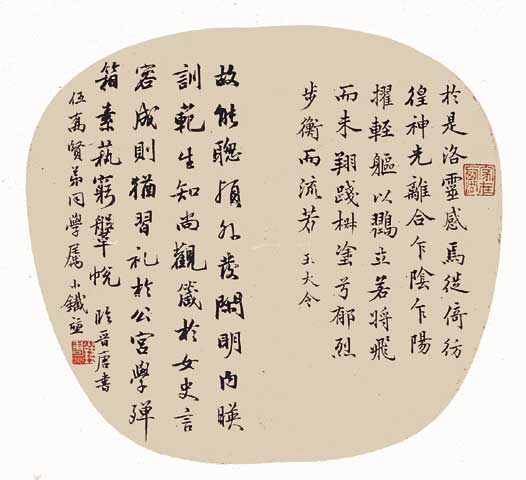 於是洛靈感焉徙倚彷
徨神光離合乍陰乍陽
擢輕軀以鶴立若將飛
而未翔踐椒塗兮郁烈
步衡而流芳 王大令
故能聰穎外發閑明内暎
訓範生知尚觀箴於女史言
容成則猶習礼於公宮學殫
箱素蓺窮鞶帨 臨晋唐書
伍高賢弟同學属 小鐵